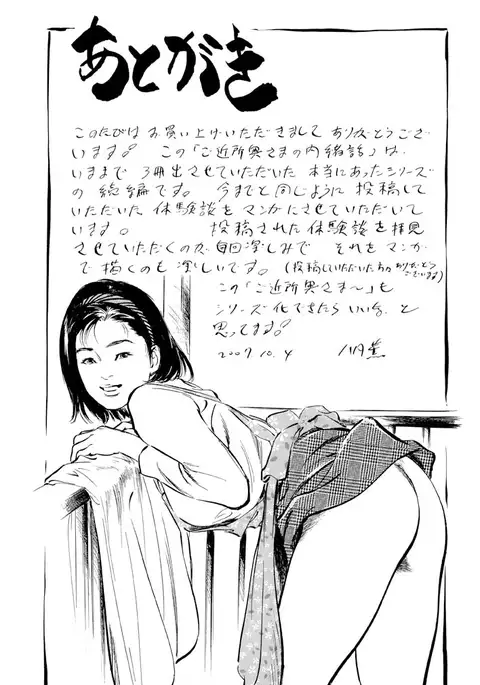 あとがき
このたびは お買い上げいただきまして ありがとうござ
います。 この「ご近所奥さまの内緒話」は、
いままで 3冊出させていただいた 本当にあったシリーズ
の 総編です。 今までと同じように 投稿して
いただいた 体験談を マンガにさせていただいて
います。 投稿された体験談を拝見
させていただくのが毎回楽しみで それをマンガ
で描くのも 楽しいです。(投稿していただいた方 ありがとう
ございます)
この「ご近所奥さま〜」も
シリーズ化できたら いいな と
思ってます。
2007.10.4 八月薫